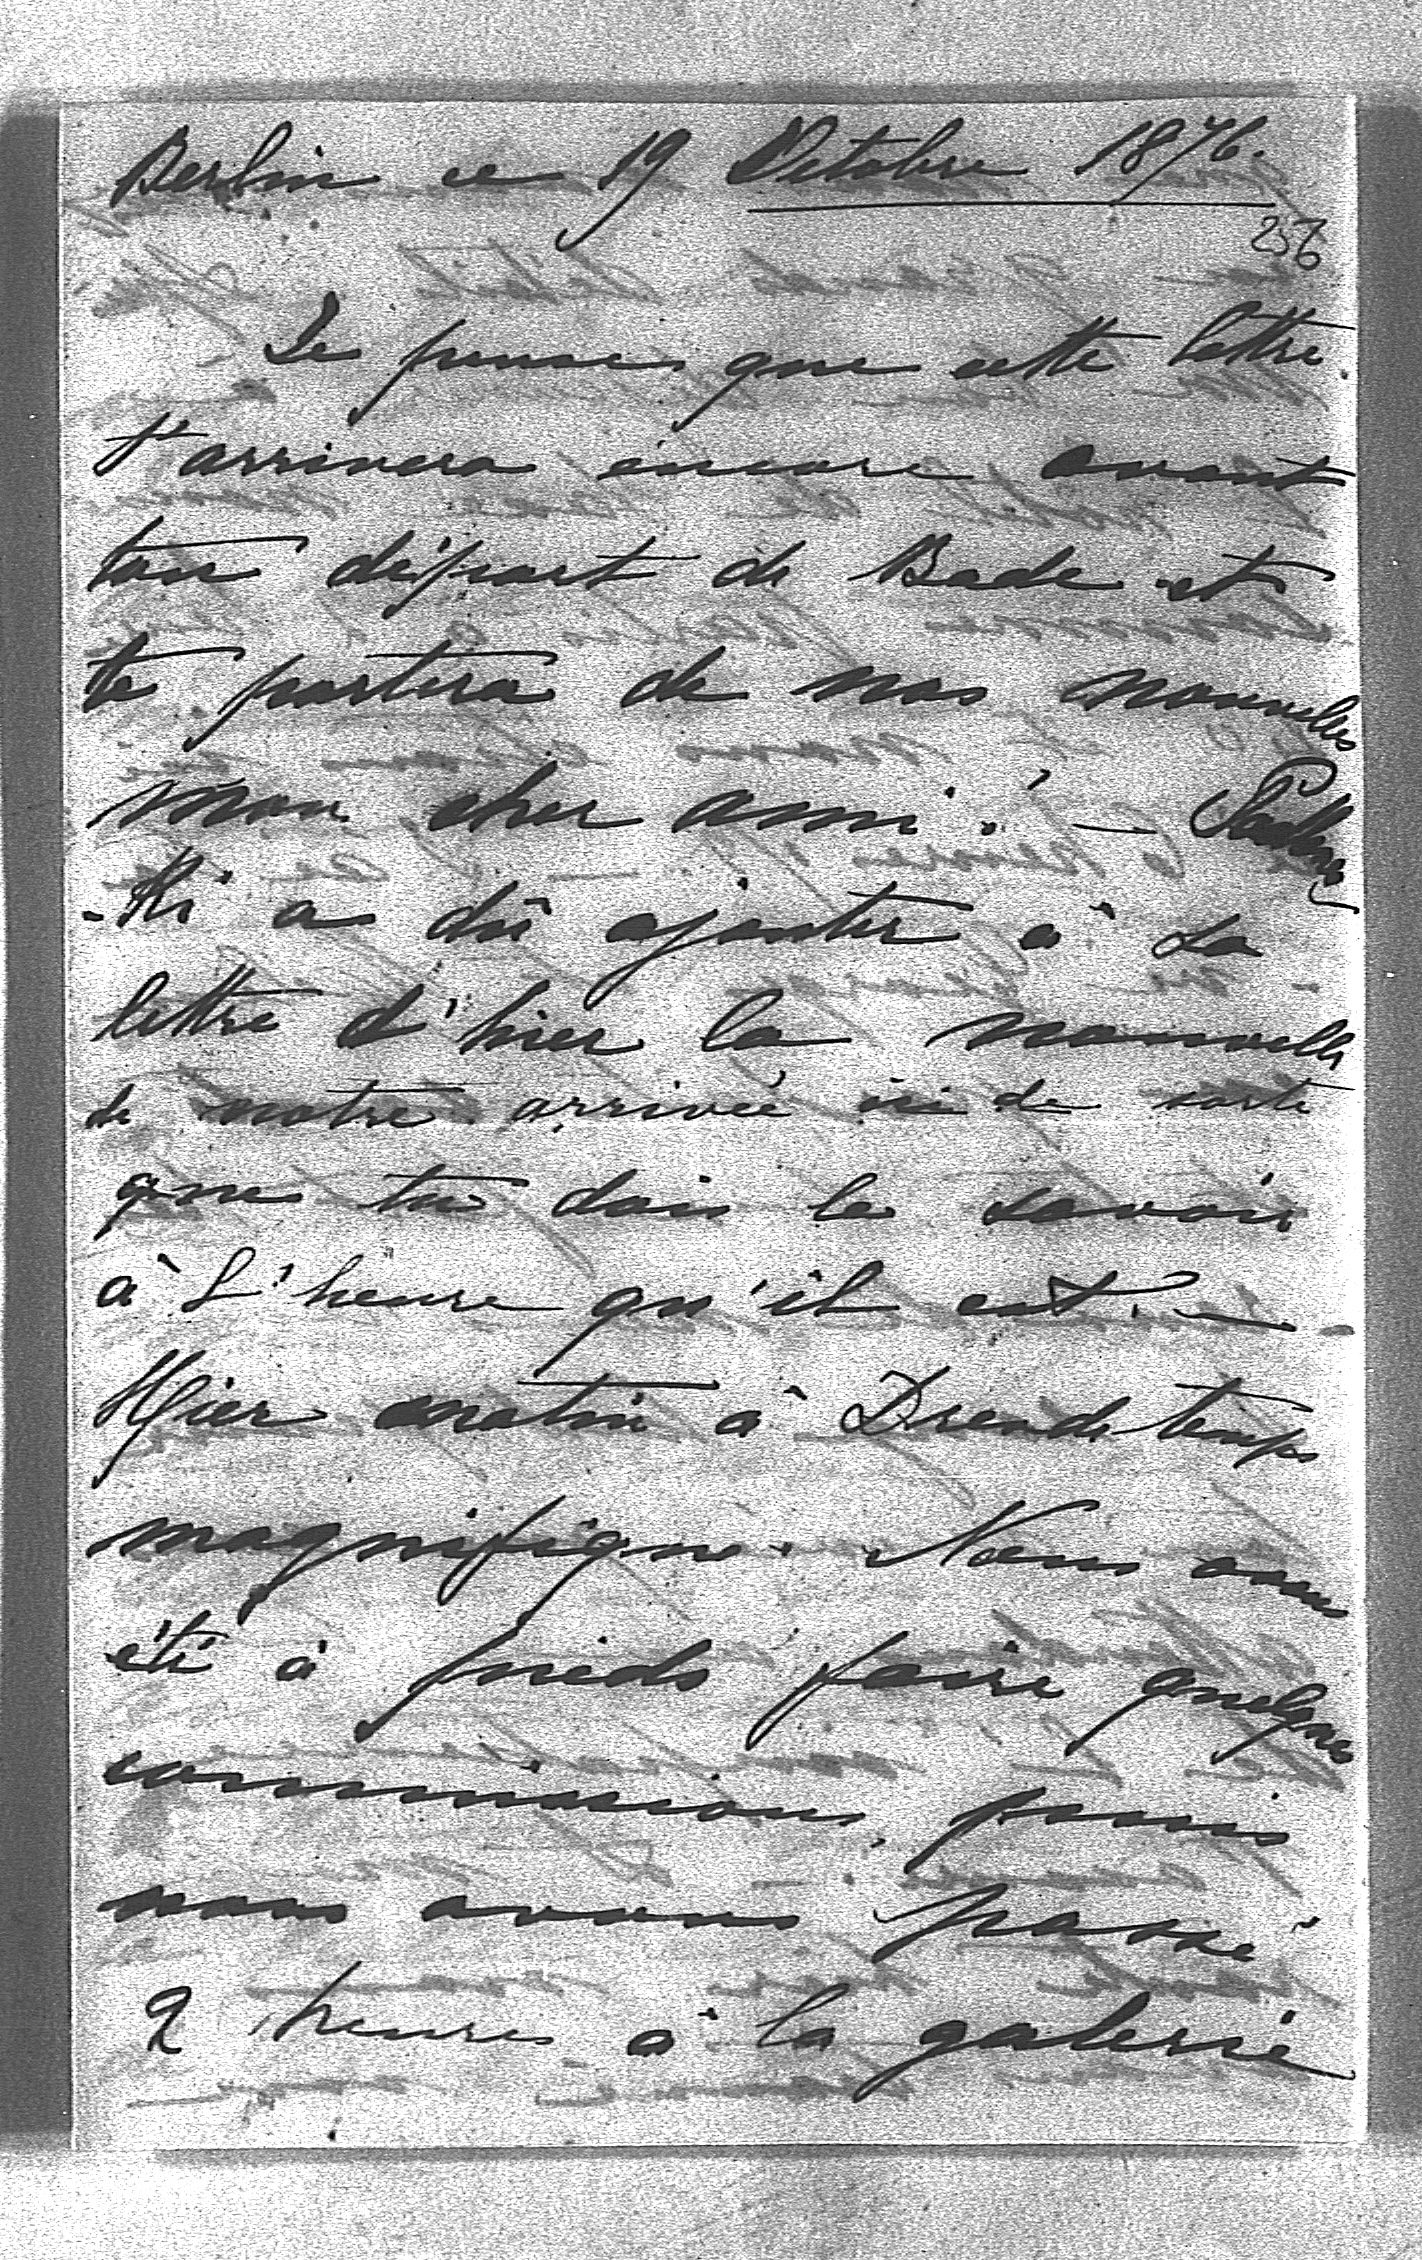 Berlin ce 19 Octobre 1876.
256
Je pense que cette lettre
t'arrivera encore avant
ton départ de Bade et
te portera de nos nouvelles
mon cher ami! —
-ki a dû ajouter à sa
lettre d'hier la nouvelle
de notre arrivée ici de sorte
que tu dois le savoir
à l'heure qu'il est. —
Hier matin à Dresde temps
magnifique. Nous avons
été à pieds faire quelques
commissions, puis
nous avons passé
2 heures à la galerie